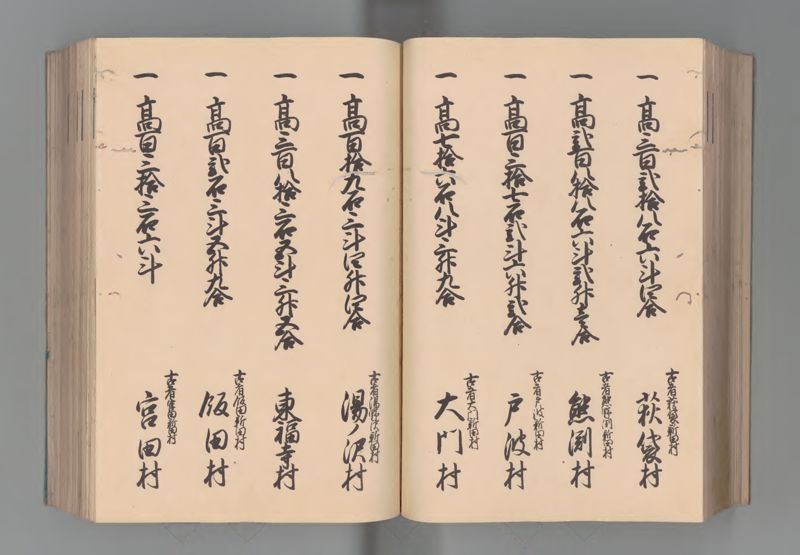 一高三百弐拾八石六斗四合
古者萩袋新田村
萩袋村
一高弐百八拾八石六斗弐升壱合
古者熊渕新田村
熊渕村
一高百三拾七石弐斗六升弐合
古者戸波新田村
戸波村
一高七拾六石八斗三升九合
古者大門新田村
大門村
一高百拾九石三斗四升四合
古者湯ノ沢新田村
湯ノ沢村
一高三百八拾三石五斗三升五合
東福寺村
一高百弐石三斗五升九合
古者飯田新田村
飯田村
一高百三拾三石六斗
古者宮田新田村
宮田村